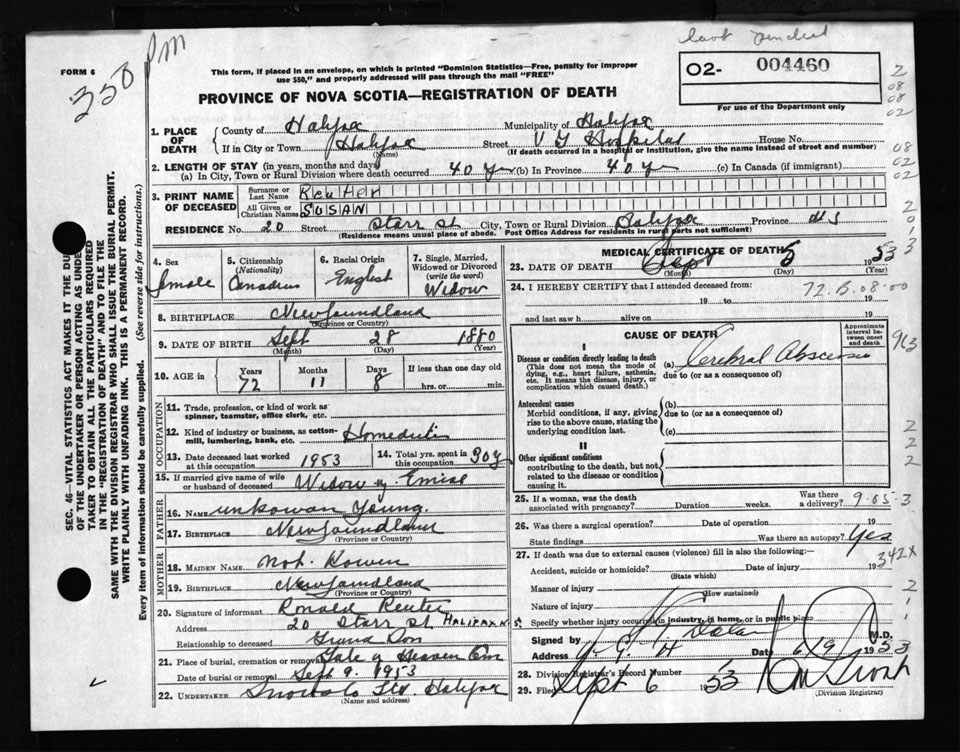 last pencil
350 PM
FORM 6
This form, if placed in an envelope, on which is printed "Dominion Statistics—Free, penalty for improper
use $50," and properly addressed will pass through the mail "FREE"
02- 004460
For use of the Department only
PROVINCE OF NOVA SCOTIA—REGISTRATION OF DEATH
1. PLACE OF DEATH { County of Halifax Municipality of Halifax
If in City or Town Halifax (Name) Street V G Hospital House No.
(If death occurred in a hospital or institution, give the name instead of street and number)
2. LENGTH OF STAY (in years, months and days)
(a) In City, Town or Rural Division where death occurred 40 yr (b) In Province 40 yr (c) In Canada (if immigrant)
3. PRINT NAME OF DECEASED { Surname or Last Name
All Given or Christian Names SUSAN
RESIDENCE No. 20 Street Starr St City, Town or Rural Division Halifax Province N S
(Residence means usual place of abode. Post Office Address for residents in rural parts not sufficient)
4. Sex Female
5. Citizenship (Nationality) Canadian
6. Racial Origin English
7. Single, Married, Widowed or Divorced (write the word) Widow
8. BIRTHPLACE Newfoundland
(Province or Country)
9. DATE OF BIRTH Sept 28 1880
(Month) (Day) (Year)
10. AGE in Years 72 Months 11 Days 8 If less than one day old
hrs. or min.
OCCUPATION
11. Trade, profession, or kind of work as spinner, teamster, office clerk, etc.
12. Kind of industry or business, as cotton-mill, lumbering, bank, etc. Homeduties
13. Date deceased last worked at this occupation 1953
14. Total yrs. spent in this occupation 30 y
15. If married give name of wife or husband of deceased Widow of
FATHER
16. NAME unkowan Young.
17. BIRTHPLACE Newfoundland
(Province or Country)
MOTHER
18. MAIDEN NAME not.
19. BIRTHPLACE Newfoundland
(Province or Country)
20. Signature of informant Ronald Reuter
Address 20 Starr St HALIFAX N S.
Relationship to deceased Grand Son
21. Place of burial, cremation or removal Gate of Heaven Cem
Date of burial or removal Sept 9. 1953
22. UNDERTAKER Snows Co Ltd Halifax
(Name and address)
MEDICAL CERTIFICATE OF DEATH
23. DATE OF DEATH Sept 5 1953
(Month) (Day) (Year)
24. I HEREBY CERTIFY that I attended deceased from:
19 to 19
and last saw h alive on 19
CAUSE OF DEATH
Approximate interval between onset and death
I
Disease or condition directly leading to death
(This does not mean the mode of dying, e.g., heart failure, asthenia, etc. It means the disease, injury, or complication which caused death.)
(a) Cerebral Abscess
due to (or as a consequence of)
Antecedent causes
Morbid conditions, if any, giving rise to the above cause, stating the underlying condition last.
(b)
due to (or as a consequence of)
(c)
II
Other significant conditions
contributing to the death, but not related to the disease or condition causing it.
25. If a woman, was the death associated with pregnancy? Duration weeks. Was there a delivery?
26. Was there a surgical operation? Date of operation 19
State findings Was there an autopsy? Yes
27. If death was due to external causes (violence) fill in also the following:
Accident, suicide or homicide? Date of injury 19
(State which)
Manner of injury
(How sustained)
Nature of injury
Specify whether injury occurred in industry, in home, or in public place
Signed by M.D.
Address V. G. H Date 6/9/ 1953
28. Division Registrar's Record Number
29. Filed Sept 6 53
(Division Registrar)
2
08
08
02
08
02
02
72.5.08.00
963
9-05-3
342X
SEC. 46—VITAL STATISTICS ACT MAKES IT THE DUTY
OF THE UNDERTAKER OR PERSON ACTING AS UNDER-
TAKER TO OBTAIN ALL THE PARTICULARS REQUIRED
IN THE "REGISTRATION OF DEATH" AND TO FILE THE
SAME WITH THE DIVISION REGISTRAR WHO SHALL ISSUE THE BURIAL PERMIT.
WRITE PLAINLY WITH UNFADING INK. THIS IS A PERMANENT RECORD.
Every item of information should be carefully supplied. (See reverse side for instructions.)